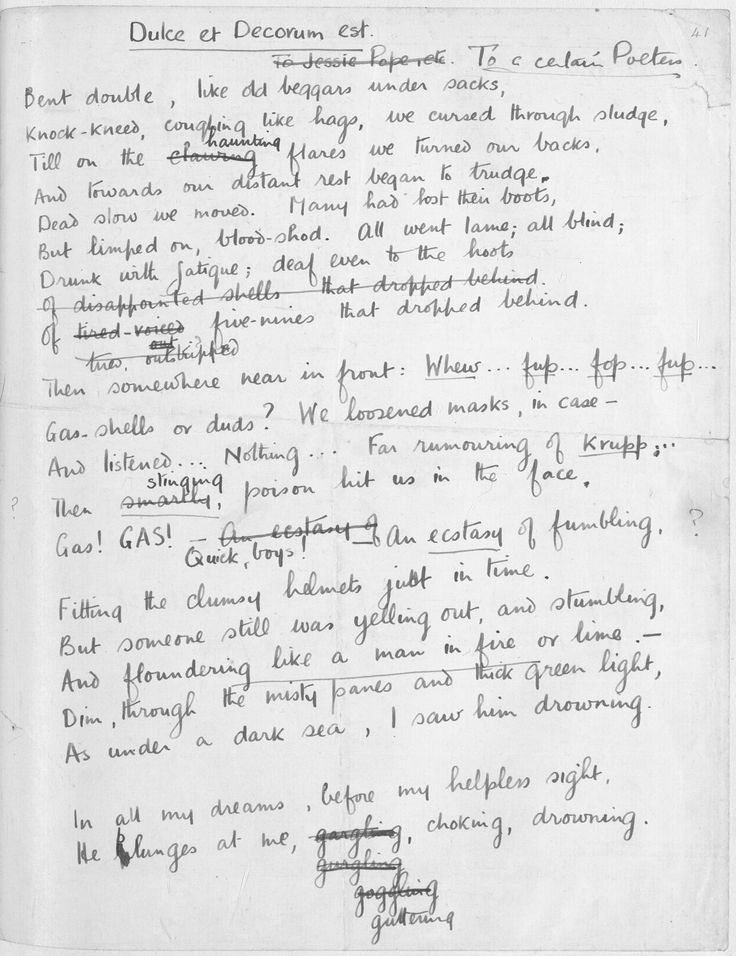 41
Dulce et Decorum est.
To Jessie Pope etc. To a certain Poetess.
Bent double, like old beggars under sacks,
Knock-kneed, coughing like hags, we cursed through sludge,
haunting
Till on the clawing flares we turned our backs,
And towards our distant rest began to trudge.
Dead slow we moved. Many had lost their boots,
But limped on, blood-shod. All went lame; all blind;
Drunk with fatigue; deaf even to the hoots
of disappointed shells that dropped behind.
Of tired-voiced five-nines that dropped behind.
out
tired, outstripped
Then somewhere near in front: Whew... fup... fop... fup...
Gas-shells or duds? We loosened masks, in case —
And listened... Nothing... Far rumouring of Krupp...
stinging
Then smartly, poison hit us in the face.
? Gas! GAS! — An ecstasy of — An ecstasy of fumbling, ?
Quick, boys!
Fitting the clumsy helmets just in time.
But someone still was yelling out, and stumbling,
And floundering like a man in fire or lime. —
Dim, through the misty panes and thick green light,
As under a dark sea, I saw him drowning.
In all my dreams, before my helpless sight,
He plunges at me, gargling, choking, drowning.
gurgling
goggling
guttering